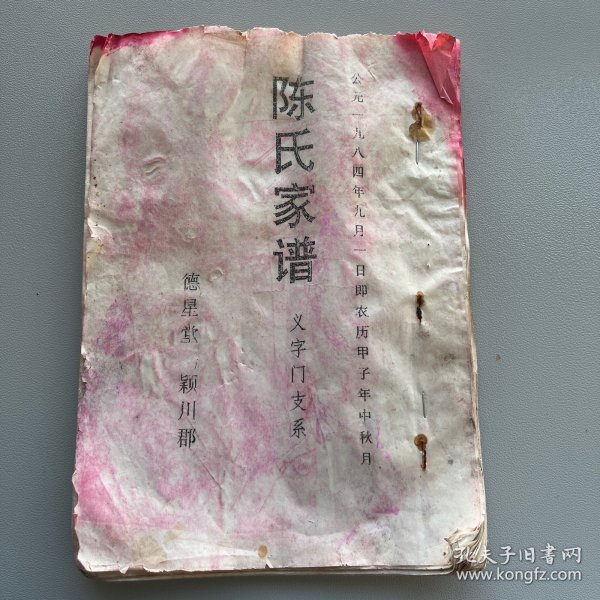 公元一九八四年九月一日即农历甲子年中秋月
陈氏家谱
义字门支系
德星堂 颖川郡
孔夫子旧书网
www.kongfz.com